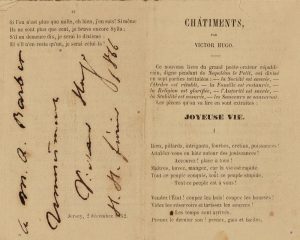 Si l'on n'est plus que mille, eh bien, j'en suis! Si même
Ils ne sont plus que cent, je brave encore Sylla;
S'il en demeure dix, je serai le dixième;
Et s'il n'en reste qu'un, je serai celui-là!
Jersey, 2 décembre 1852.
à M. A. Barbier
Victor Hugo
H. H. 1866
CHÂTIMENTS,
PAR
VICTOR HUGO.
Ce nouveau livre du grand poète-orateur républi-
cain, digne pendant de Napoléon le Petit, est divisé
en sept parties intitulées : — la Société est sauvée,
l'Ordre est rétabli, — la Famille est restaurée,
la Religion est glorifiée, — l'Autorité est sacrée,
— la Stabilité est assurée, — les Sauveurs se sauveront.
Les pièces qu'on va lire en sont extraites :
JOYEUSE VIE.
I
Bien, pillards, intrigants, fourbes, crétins, puissances!
Attablez-vous en hâte autour des jouissances!
Accourez! place à tous!
Maîtres, buvez, mangez, car la vie est rapide.
Tout ce peuple conquis, tout ce peuple stupide,
Tout ce peuple est à vous!
Vendez l'État! coupez les bois! coupez les bourses!
Videz les réservoirs et tarissez les sources!
Les temps sont arrivés.
Prenez le dernier sou! prenez, gais et faciles,